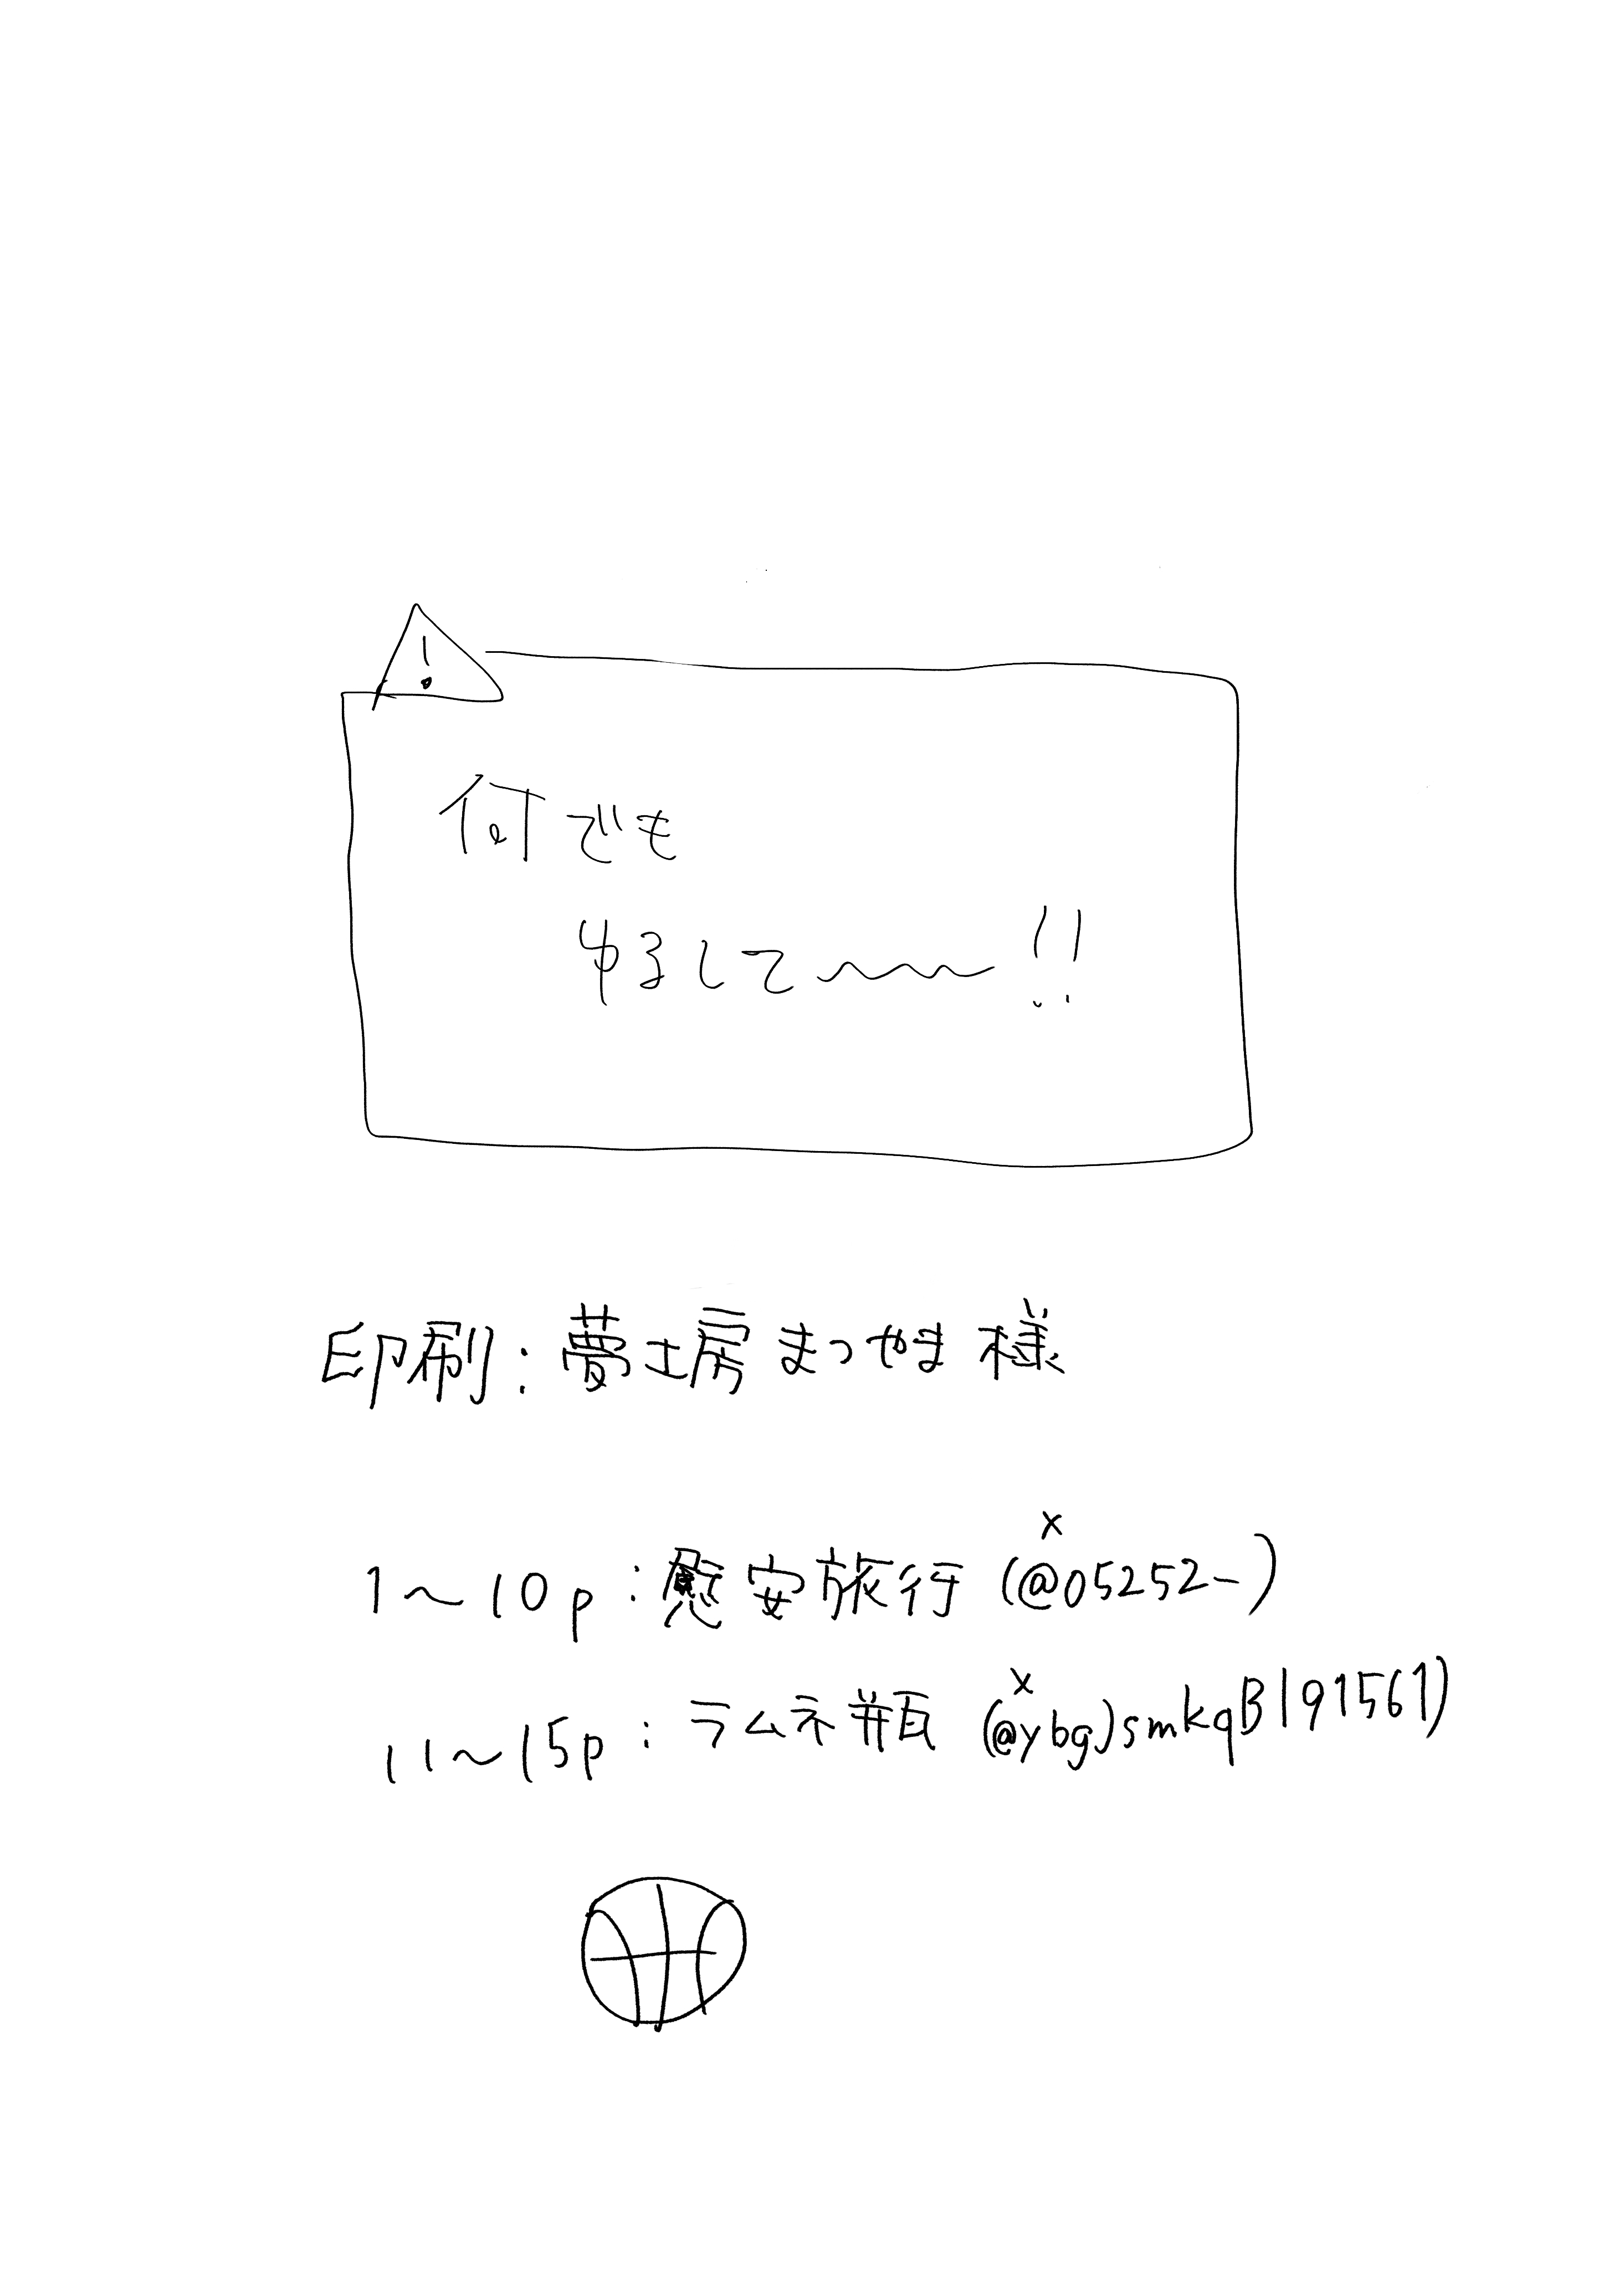 !
何でも
ゆるして〜〜!!
印刷:夢工房まつやま様
X
1〜10p:慰安旅行(@05252-)
X
11〜15p:ラムネ瓶(@ybgJsmkqB191561)